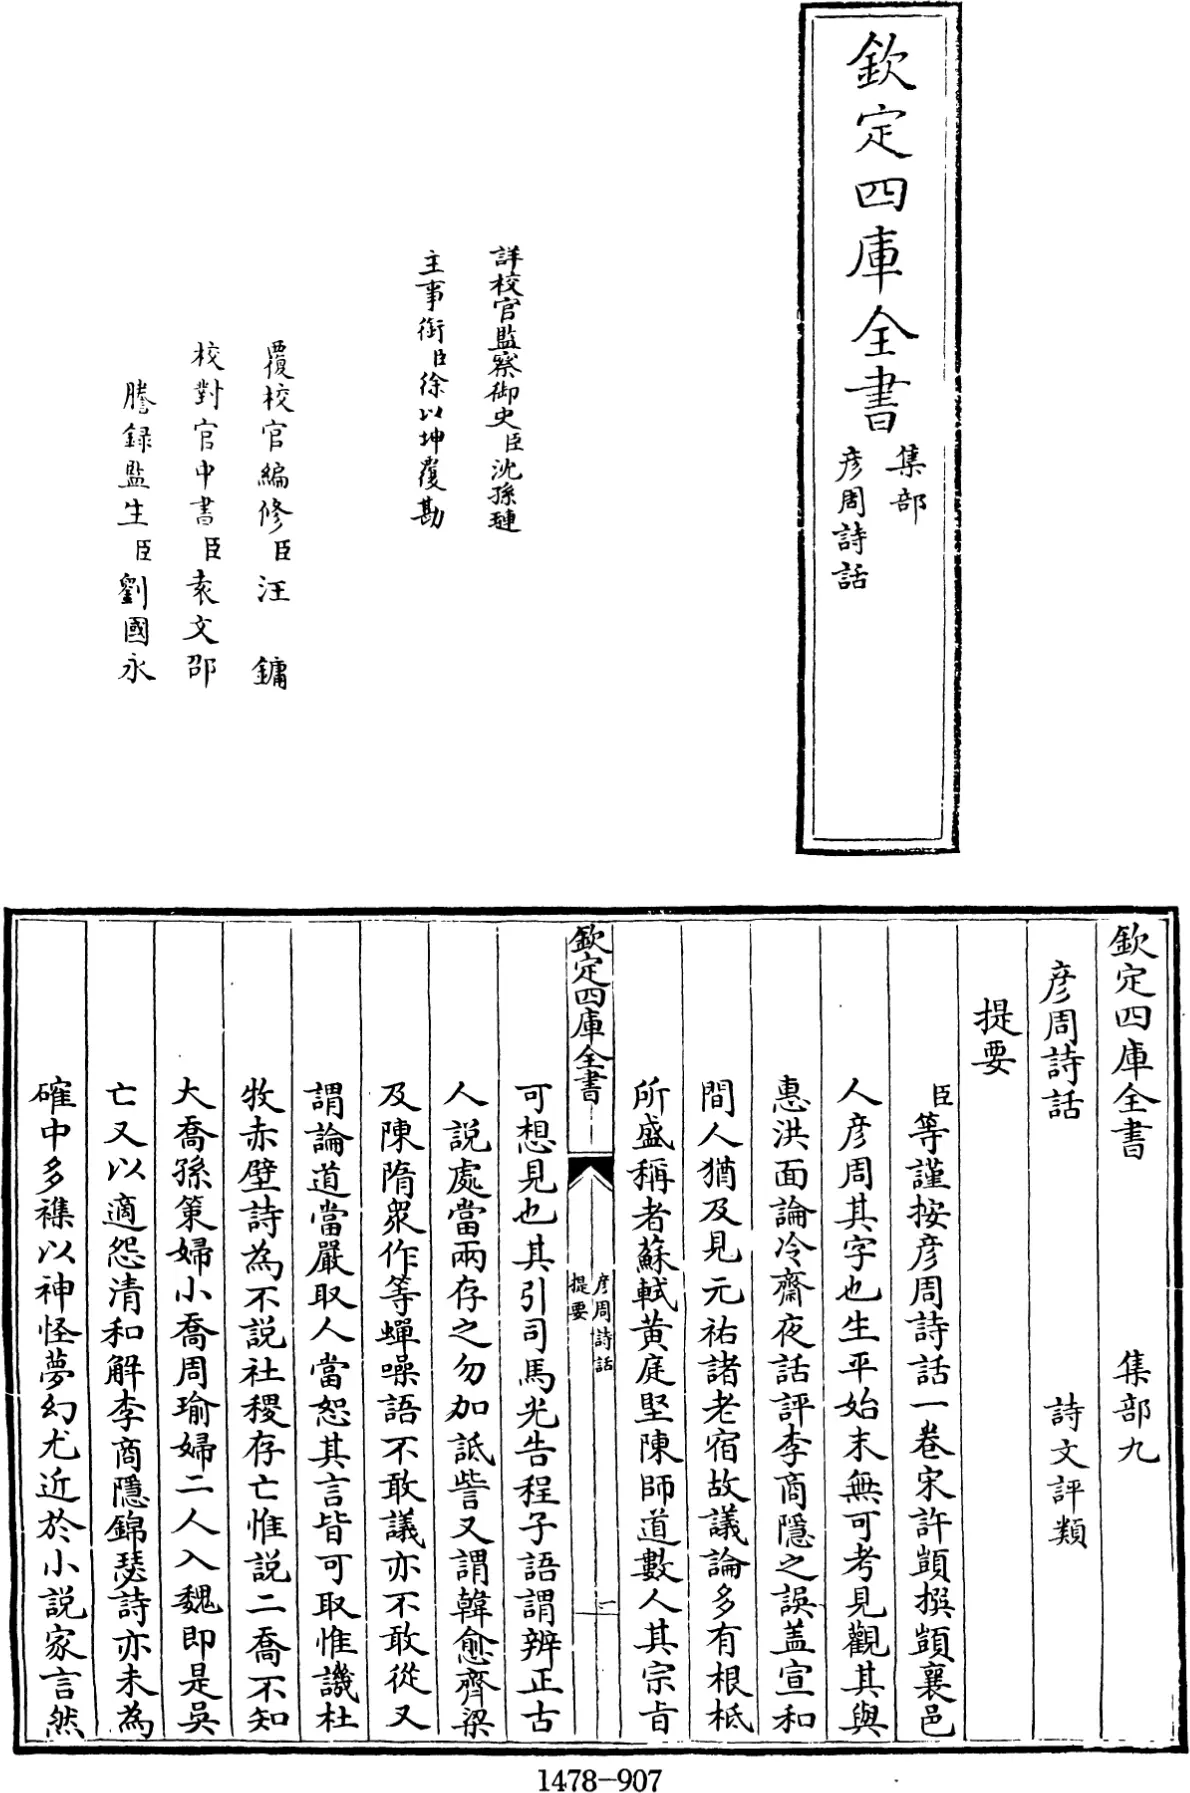 欽定四庫全書
集部
彦周詩話
詳校官監察御史臣沈孫璉
主事銜臣徐以坤覆勘
覆校官編修臣汪鏞
校對官中書臣袁文邵
謄録監生臣劉國永
欽定四庫全書 集部九
彦周詩話 詩文評類
提要
臣等謹按彦周詩話一卷宋許顗撰顗襄邑
人彦周其字也生平始末無可考見觀其與
惠洪面論冷齋夜話評李商隱之誤盖宣和
間人猶及見元祐諸老宿故議論多有根柢
所盛稱者蘇軾黄庭堅陳師道數人其宗旨
欽定四庫全書
彦周詩話
提要
一
可想見也其引司馬光告程子語謂辨正古
人說處當兩存之勿加詆訾又謂韓愈齊梁
及陳隋衆作等蟬噪語不敢議亦不敢從又
謂論道當嚴取人當恕其言皆可取惟譏杜
牧赤壁詩為不說社稷存亡惟說二喬不知
大喬孫策婦小喬周瑜婦二人入魏即是吳
亡又以適怨清和解李商隱錦瑟詩亦未為
確中多襍以神怪夢幻尤近於小說家言然
1478-907